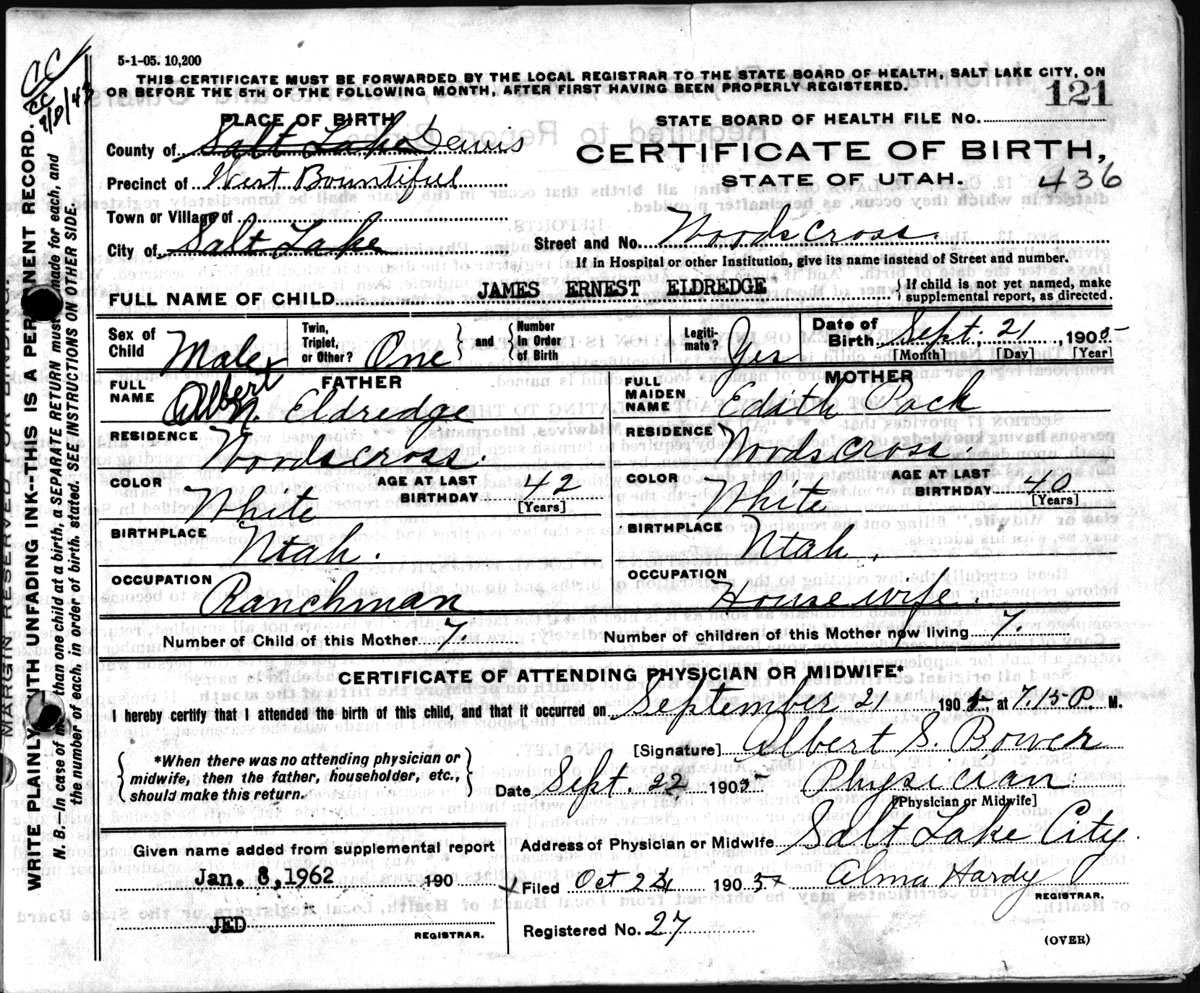 5-1-05. 10,200
THIS CERTIFICATE MUST BE FORWARDED BY THE LOCAL REGISTRAR TO THE STATE BOARD OF HEALTH, SALT LAKE CITY, ON
OR BEFORE THE 5TH OF THE FOLLOWING MONTH, AFTER FIRST HAVING BEEN PROPERLY REGISTERED.
121
PLACE OF BIRTH
STATE BOARD OF HEALTH FILE No.
County of Salt Lake Davis
CERTIFICATE OF BIRTH,
Precinct of West Bountiful
STATE OF UTAH. 436
Town or Village of
City of Salt Lake
Street and No. Woodscross.
If in Hospital or other Institution, give its name instead of Street and number.
FULL NAME OF CHILD JAMES ERNEST ELDREDGE
{ If child is not yet named, make
supplemental report, as directed.
Sex of Child Male
Twin, Triplet, or Other? One } and { Number in Order of Birth
Legiti-mate? Yes
Date of Birth Sept. 21 1905
[Month] [Day] [Year]
FATHER
FULL NAME Albert N. Eldredge
RESIDENCE Woodscross.
COLOR White
AGE AT LAST BIRTHDAY 42
[Years]
BIRTHPLACE Utah.
OCCUPATION Ranchman
MOTHER
FULL MAIDEN NAME Edith Pack
RESIDENCE Woodscross.
COLOR White
AGE AT LAST BIRTHDAY 40
[Years]
BIRTHPLACE Utah.
OCCUPATION Housewife.
Number of Child of this Mother 7
Number of children of this Mother now living 7.
CERTIFICATE OF ATTENDING PHYSICIAN OR MIDWIFE*
I hereby certify that I attended the birth of this child, and that it occurred on September 21 1905, at 7.15 P. M.
{ *When there was no attending physician or
midwife, then the father, householder, etc.,
should make this return. }
[Signature] Albert S. Bower
Date Sept. 22 1905 Physician
[Physician or Midwife]
Address of Physician or Midwife Salt Lake City.
Given name added from supplemental report
Jan. 8, 1962 190
JED
REGISTRAR.
Filed Oct 24 1905 Alma Hardy
REGISTRAR.
Registered No. 27
(OVER)
MARGIN RESERVED FOR BINDING.
WRITE PLAINLY WITH UNFADING INK--THIS IS A PERMANENT RECORD.
N. B. In case of more than one child at a birth, a SEPARATE RETURN must be made for each, and
the number of each, in order of birth, stated. SEE INSTRUCTIONS ON OTHER SIDE.